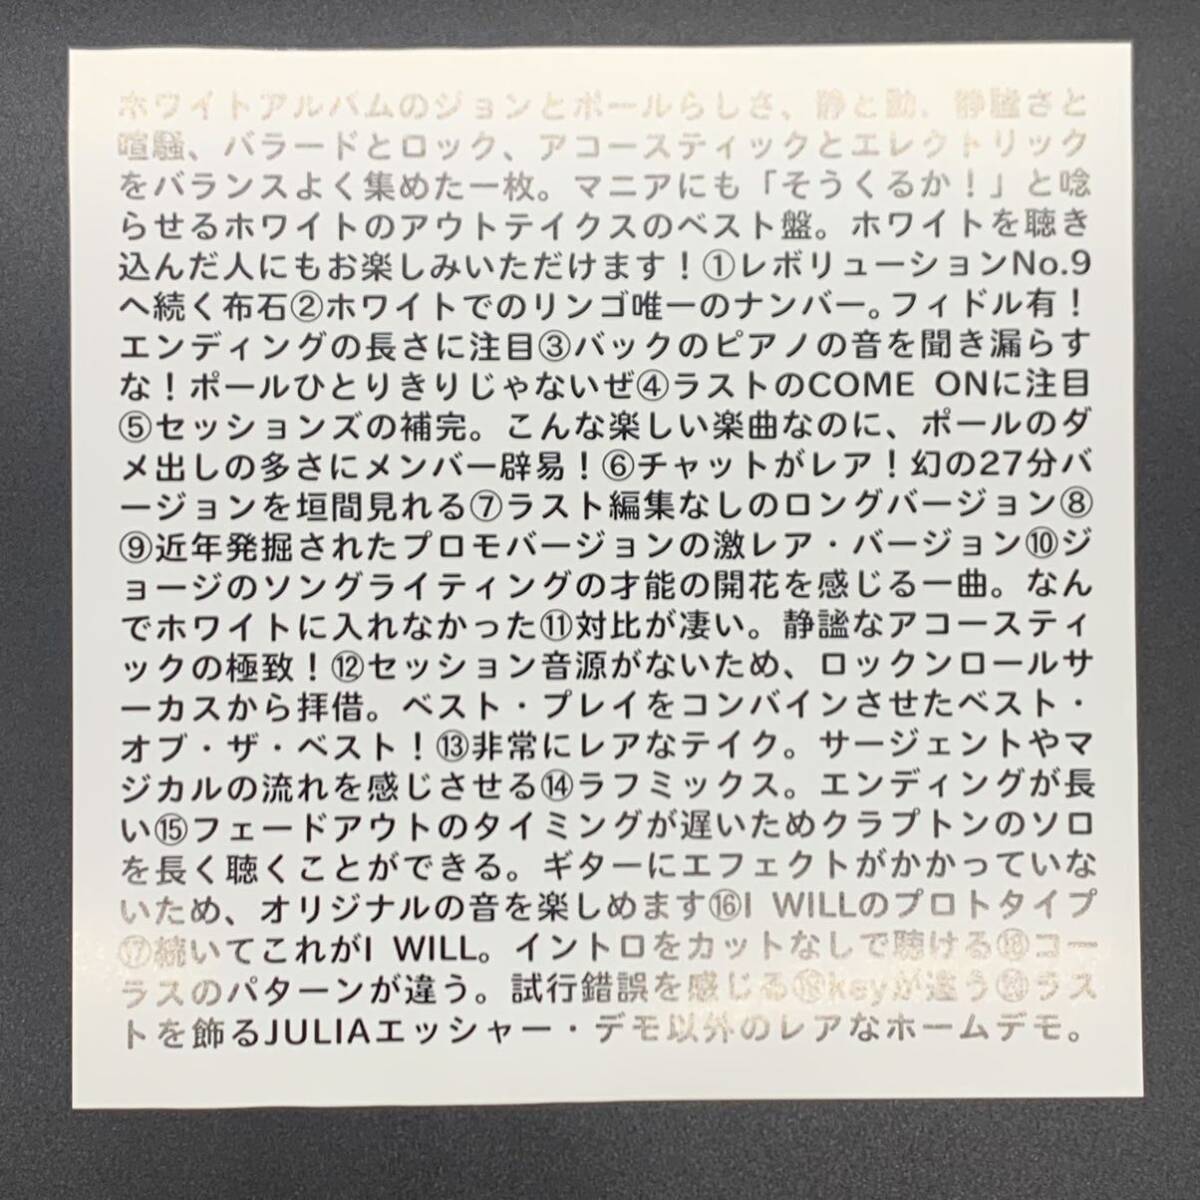 ホワイトアルバムのジョンとポールらしさ、静と動、静謐さと
喧騒、バラードとロック、アコースティックとエレクトリック
をバランスよく集めた一枚。マニアにも「そうくるか！」と唸
らせるホワイトのアウトテイクスのベスト盤。ホワイトを聴き
込んだ人にもお楽しみいただけます！①レボリューションNo.9
へ続く布石②ホワイトでのリンゴ唯一のナンバー。フィドル有！
エンディングの長さに注目③バックのピアノの音を聞き漏らす
な！ポールひとりきりじゃないぜ④ラストのCOME ONに注目
⑤セッションズの補完。こんな楽しい楽曲なのに、ポールのダ
メ出しの多さにメンバー辟易！⑥チャットがレア！幻の27分バ
ージョンを垣間見れる⑦ラスト編集なしのロングバージョン⑧
⑨近年発掘されたプロモバージョンの激レア・バージョン⑩ジ
ョージのソングライティングの才能の開花を感じる一曲。なん
でホワイトに入れなかった⑪対比が凄い。静謐なアコースティ
ックの極致！⑫セッション音源がないため、ロックンロールサ
ーカスから拝借。ベスト・プレイをコンバインさせたベスト・
オブ・ザ・ベスト！⑬非常にレアなテイク。サージェントやマ
ジカルの流れを感じさせる⑭ラフミックス。エンディングが長
い⑮フェードアウトのタイミングが遅いためクラプトンのソロ
を長く聴くことができる。ギターにエフェクトがかかっていな
いため、オリジナルの音を楽しめます⑯I WILLのプロトタイプ
⑰続いてこれがI WILL。イントロをカットなしで聴ける⑱コー
ラスのパターンが違う。試行錯誤を感じる⑲keyが違う⑳ラス
トを飾るJULIAエッシャー・デモ以外のレアなホームデモ。